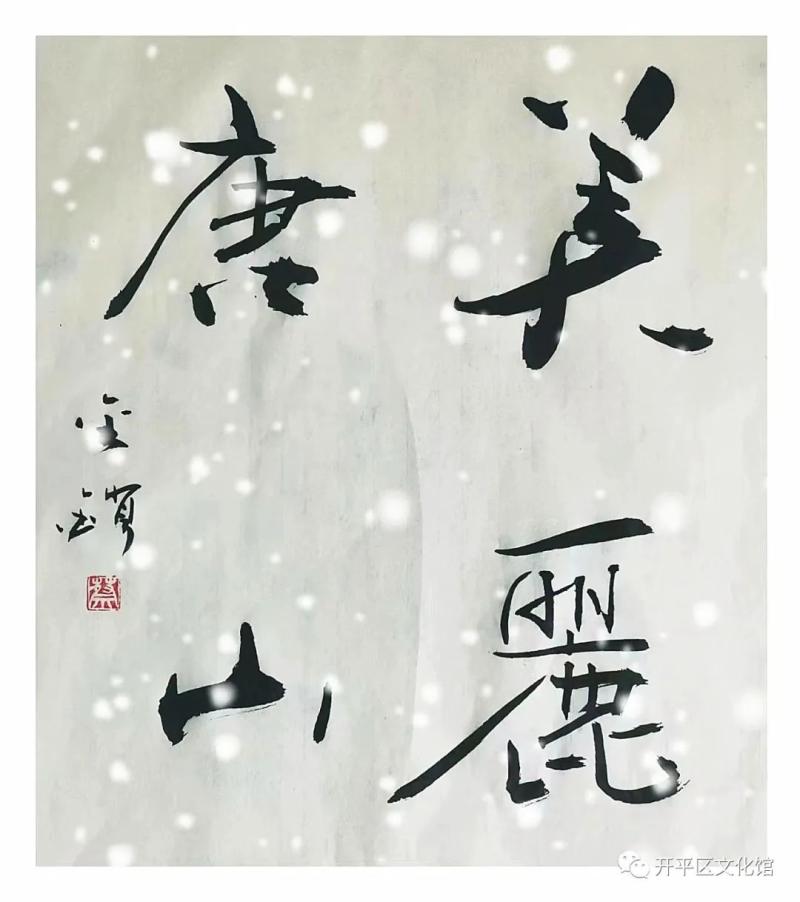 美麗
唐山
金鎖
开平区文化馆